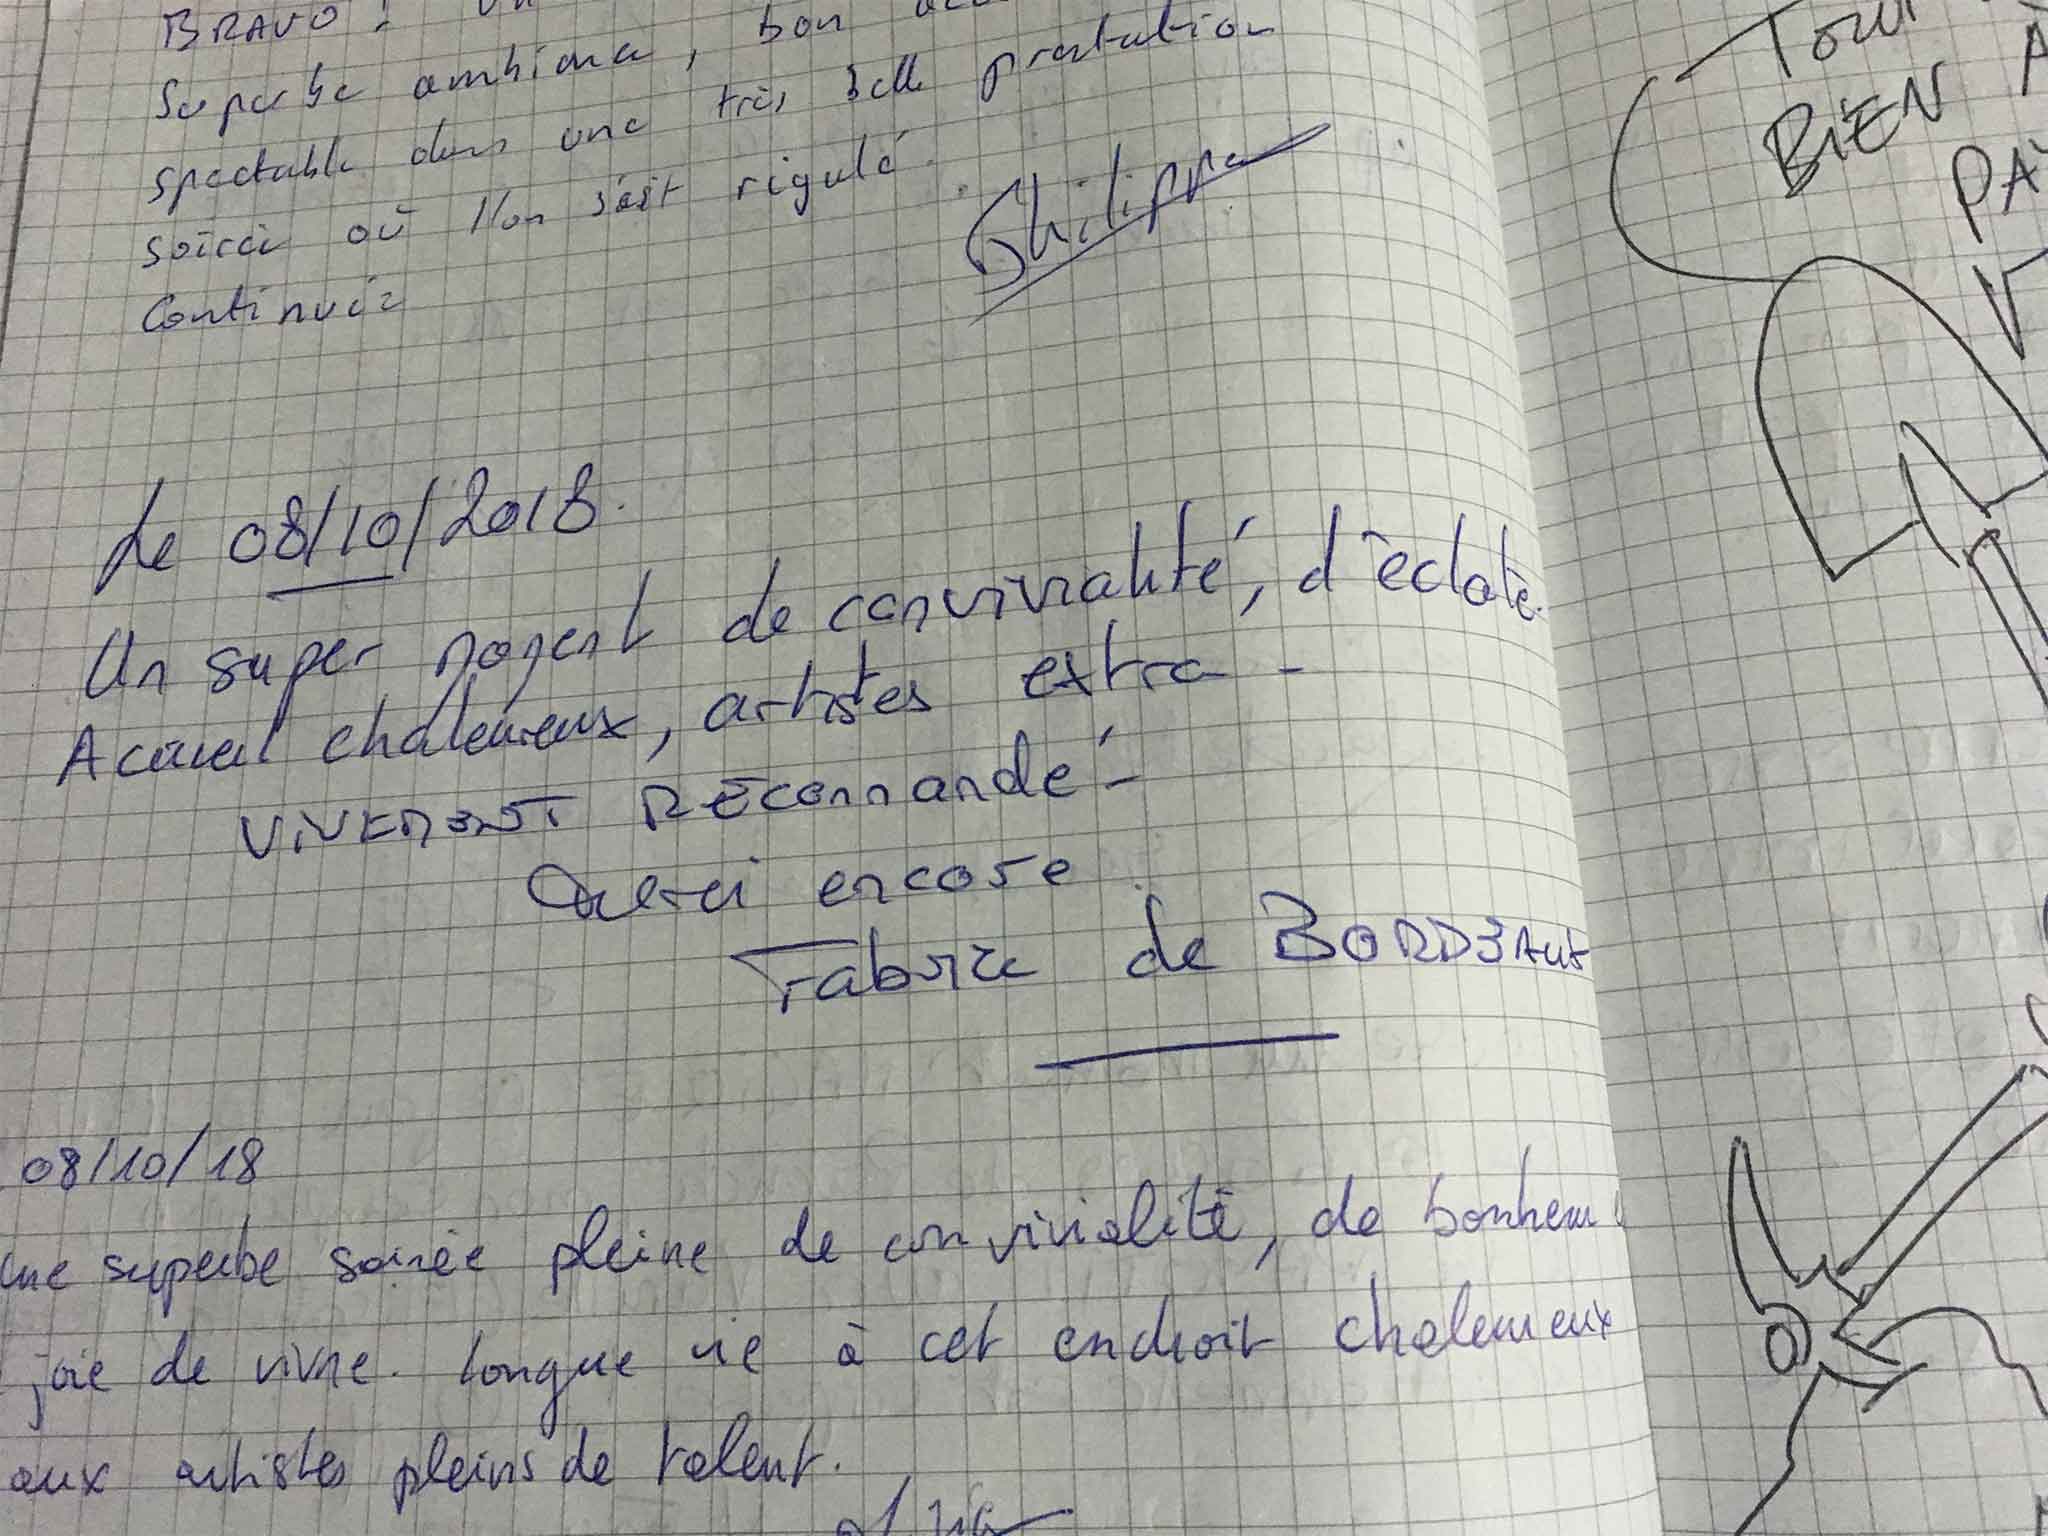 BRAVO !
Superbe ambiance, bon
spectable dans une très belle prestation
soirée où l'on s'est rigulé.
Continuez
Philippe
Le 08/10/2018.
Un super moment de convivialité, d'éclate.
Accueil chaleureux, artistes extra -
VIVEMENT RECOMMANDé -
Merci encore
Fabrice de BORDEAUX
08/10/18
une superbe soirée pleine de convivialité, de bonheur
joie de vivre. longue vie à cet endroit chaleureux
aux artistes pleins de talent.
TOUT
BIEN A
PA